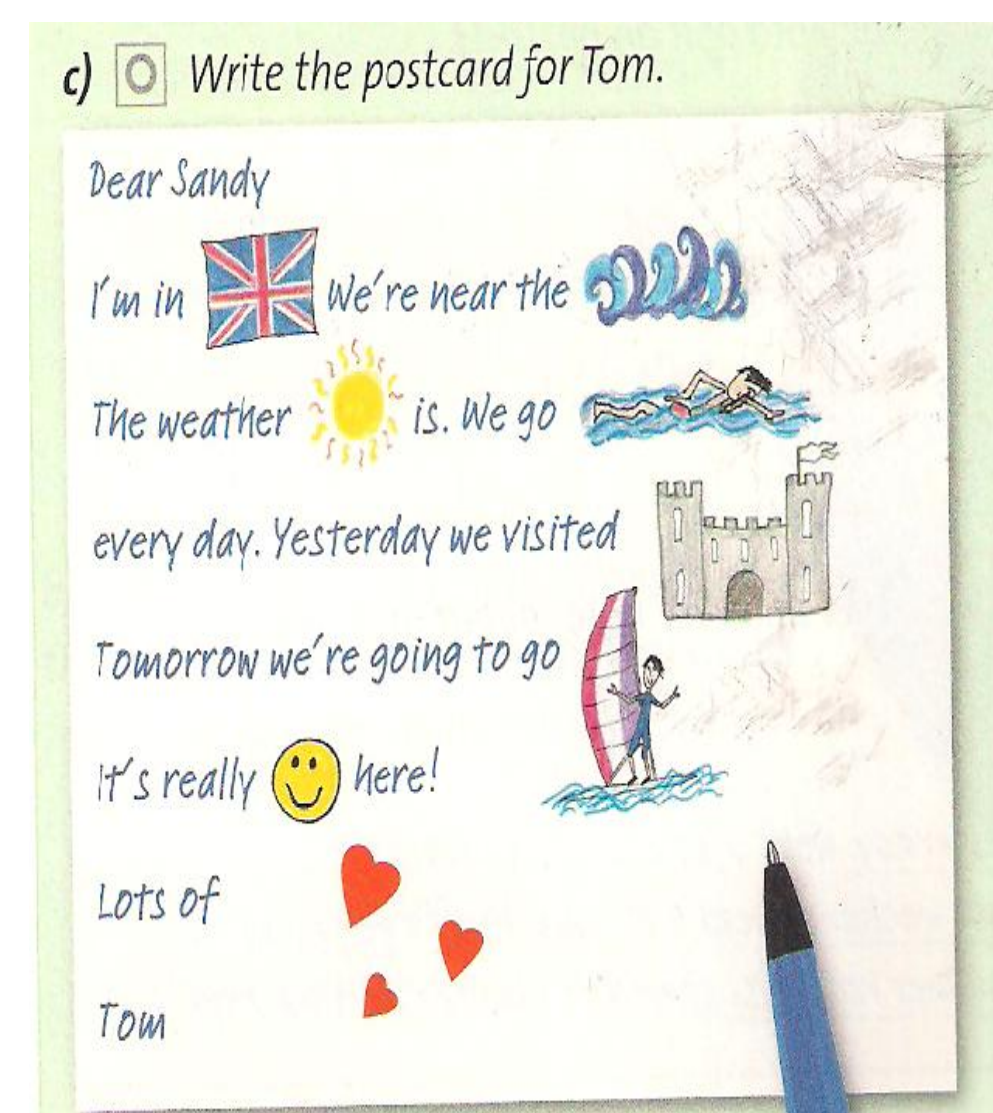 c) O Write the postcard for Tom.
Dear Sandy
I'm in We're near the
The weather is. We go
every day. Yesterday we visited
Tomorrow we're going to go
It's really here!
Lots of
Tom